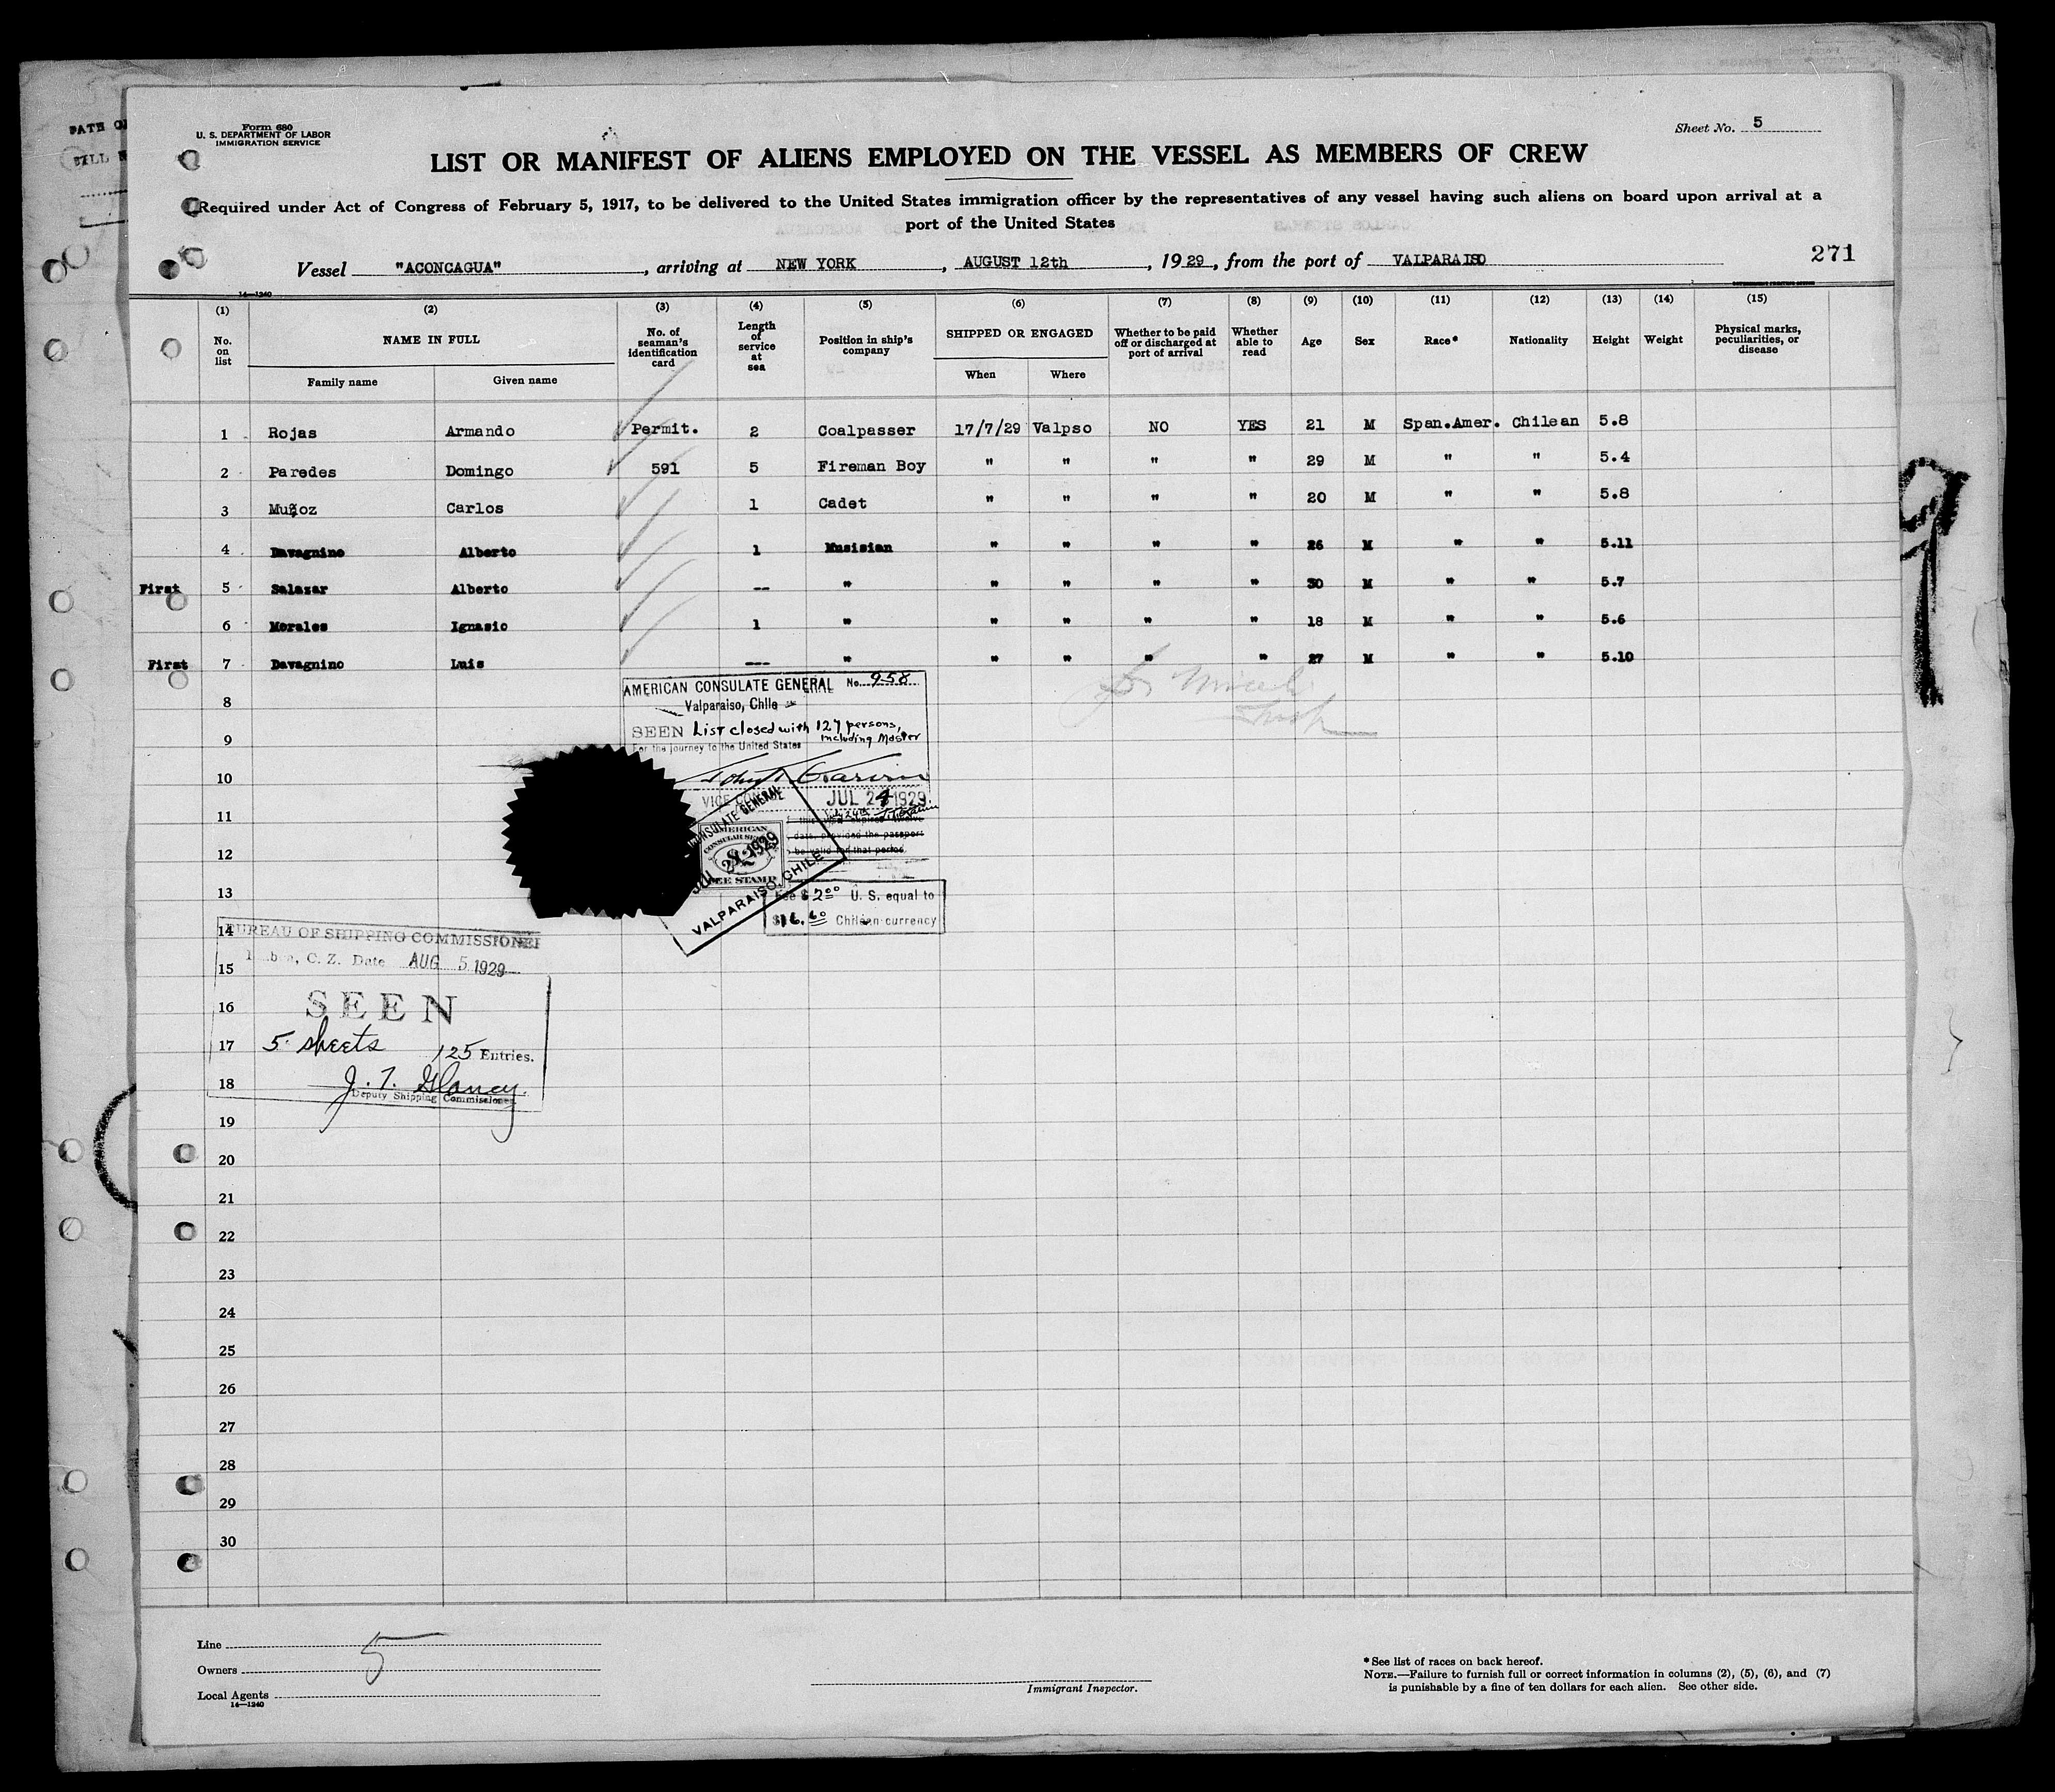 Form 680
U. S. DEPARTMENT OF LABOR
IMMIGRATION SERVICE
Sheet No. 5
LIST OR MANIFEST OF ALIENS EMPLOYED ON THE VESSEL AS MEMBERS OF CREW
Required under Act of Congress of February 5, 1917, to be delivered to the United States immigration officer by the representatives of any vessel having such aliens on board upon arrival at a
port of the United States
Vessel "ACONCAGUA", arriving at NEW YORK, AUGUST 12th, 1929, from the port of VALPARAISO
271
14—1240
(1) (2) (3) (4) (5) (6) (7) (8) (9) (10) (11) (12) (13) (14) (15)
No. on list
NAME IN FULL
Family name
Given name
No. of seaman's identification card
Length of service at sea
Position in ship's company
SHIPPED OR ENGAGED
When
Where
Whether to be paid off or discharged at port of arrival
Whether able to read
Age
Sex
Race*
Nationality
Height
Weight
Physical marks, peculiarities, or disease
1 Rojas Armando Permit. 2 Coalpasser 17/7/29 Valpso NO YES 21 M Span.Amer. Chilean 5.8
2 Paredes Domingo 591 5 Fireman Boy " " " " 29 M " " 5.4
3 Muñoz Carlos 1 Cadet " " " " 20 M " " 5.8
4 Davagnino Alberto 1 Musisian " " " " 26 M " " 5.11
First 5 Salazar Alberto -- " " " " " 30 M " " 5.7
6 Morales Ignasio 1 " " " " " 18 M " " 5.6
First 7 Davagnino Luis --- " " " " " 27 M " " 5.10
8
9
10
11
12
13
14
15
16
17
18
19
20
21
22
23
24
25
26
27
28
29
30
AMERICAN CONSULATE GENERAL No. 958
Valparaiso, Chile
SEEN List closed with 127 persons,
including Master
For the journey to the United States
VICE CONSUL
JUL 24 1929
date, provided the passport
be valid for that period.
AMERICAN
CONSULAR SERVICE
FEE STAMP
CONSULATE GENERAL
JUL 24 1929
VALPARAISO, CHILE
Fee $2.00 U. S. equal to
$16.60 Chilean currency
BUREAU OF SHIPPING COMMISSIONER
C. Z. Date AUG 5 1929
SEEN
5 sheets 125 Entries.
J. T. Glancy
Deputy Shipping Commissioner.
Line 5
Owners
Local Agents
14—1240
Immigrant Inspector.
* See list of races on back hereof.
NOTE.—Failure to furnish full or correct information in columns (2), (5), (6), and (7)
is punishable by a fine of ten dollars for each alien. See other side.